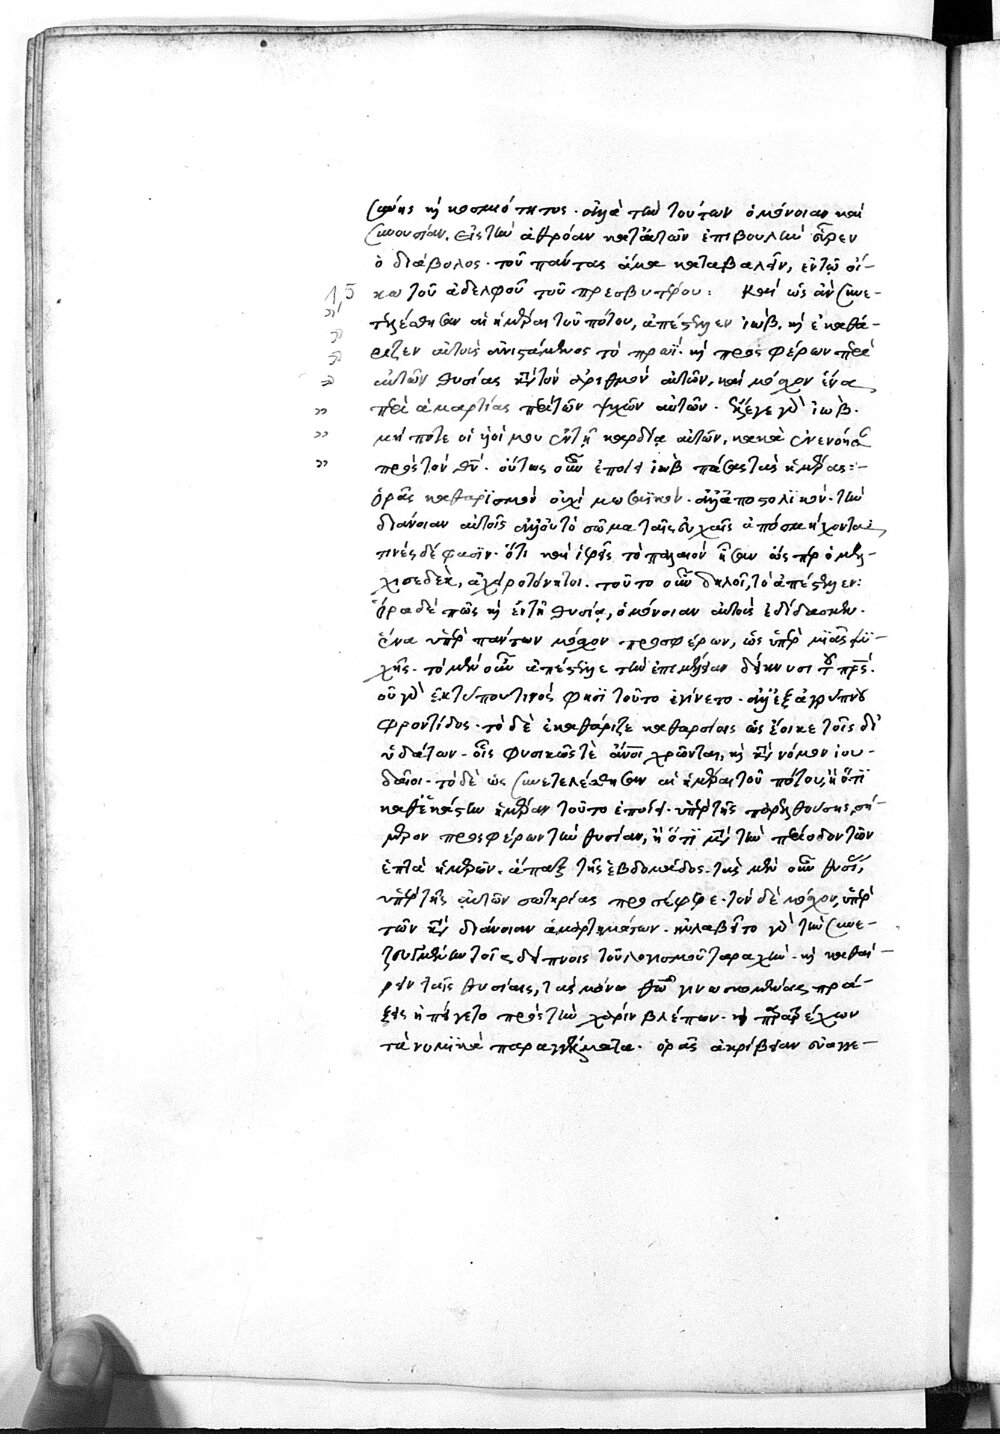 καὶ κοσμιότητος. ἀλλὰ τὴν τούτων ὁμόνοιαν καὶ
συνουσίαν. εἰς τὴν ἀθρόαν κατ' αὐτῶν ἐπιβουλὴν εὗρεν
ὁ διάβολος. τοῦ πάντας ἅμα καταβαλεῖν, ἐν τῷ οἴ-
1,5 κω τοῦ ἀδελφοῦ τοῦ πρεσβυτέρου: καὶ ὡς ἂν συνε-
τελέσθησαν αἱ ἡμέραι τοῦ πότου, ἀπέστειλεν ἰώβ. καὶ ἐκαθά-
ριζεν αὐτοὺς ἀνιστάμενος τὸ πρωΐ. καὶ προσφέρων περὶ
αὐτῶν θυσίας κατὰ τὸν ἀριθμὸν αὐτῶν, καὶ μόσχον ἕνα
περὶ ἁμαρτίας περὶ τῶν ψυχῶν αὐτῶν. ἔλεγε γὰρ ἰώβ.
μή ποτε οἱ υἱοί μου ἐν τῇ καρδίᾳ αὐτῶν, κακὰ ἐνενόησαν
πρὸς τὸν θν. οὕτως οὖν ἐποίει ἰὼβ πάσας τὰς ἡμέρας:-
ὁρᾷς καθαρϊσμὸν οὐχὶ μωσαϊκὸν. ἀλλ' ἀποστολικόν. τὴν
διάνοιαν αὐτοῖς ἀλλ' οὐ τὸ σῶμα ταῖς εὐχαῖς ἀποσμήχοντα
τινὲς δέ φασϊν. ὅτι καὶ ἱερεῖς τὸ παλαιὸν ἦσαν ὥσπερ ὁ μελ-
χισεδὲκ, ἀχειροτόνητοι. τοῦτο οὖν δηλοῖ, τὸ ἀπέστειλεν:
ὅρα δὲ πῶς καὶ ἐν τῇ θυσίᾳ, ὁμόνοιαν αὐτοὺς ἐδίδασκεν.
ἕνα ὑπὲρ πάντων μόσχον προσφέρων, ὡς ὑπὲρ μϊᾶς ψυ-
χῆς. τὸ μὲν οὖν ἀπέστειλε τὴν ἐπιμέλειαν δείκνυσι τοῦ πρς.
οὐ γὰρ ἐκ τύπου τινὸς φησὶ τοῦτο ἐγίνετο. ἀλλ' ἐξ ἀγρύπνου
φροντίδος. τὸ δὲ ἐκαθάριζε καθαρσίοις ὡς ἔοικε τοῖς δι'
ὑδάτων. οἷς φυσικῶς τὲ ἄνοι χρῶνται, καὶ κατὰ νόμον ἰου-
δαῖοι. τὸ δὲ ὡς συνετελέσθησαν αἱ ἡμέραι τοῦ πότου, ἢ ὅτϊ
καθ' ἑκάστην ἡμέραν τοῦτο ἐποίει. ὑπὲρ τῆς παρελθούσης, σή-
μερον προσφέρων τὴν θυσίαν, ἢ ὅτϊ μετὰ τὴν περίοδον τῶν
ἑπτὰ ἡμερῶν. ἅπαξ τῆς ἑβδομάδος. τὰς μὲν οὖν θυσίας,
ὑπὲρ τῆς αὐτῶν σωτηρίας προσέφερε. τὸν δὲ μόσχον, ὑπὲρ
τῶν κατὰ διάνοιαν ἁμαρτημάτων. ηὐλαβεῖτο γὰρ τὴν συνε-
ζευγμένην τοῖς δείπνοις τοῦ λογισμοῦ ταραχὴν. καὶ καθαί-
ρειν ταῖς θυσίαις, τὰς μόνω θεῶ γινωσκομένας πρά-
ξεις ἠπείγετο πρὸς τὴν χάριν βλέπων. καὶ παρατρέχων
τὰ νομϊκὰ παραγγέλματα. ὁρᾷς ἀκρίβειαν εὐαγγε-